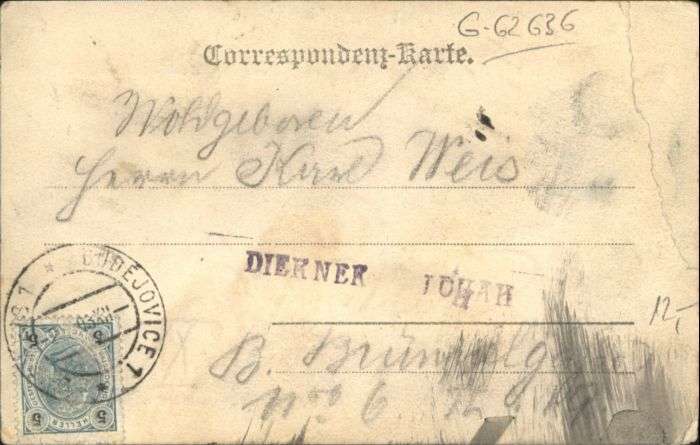 G-62636
Correspondenz-Karte.
Wohlgeboren
Herrn Karl Weis
DIERNER JOHAN
BUDĚJOVICE 1
12,-
B.
No 6.
5 5
HELLER